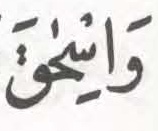 وَاِسْحٰقَ